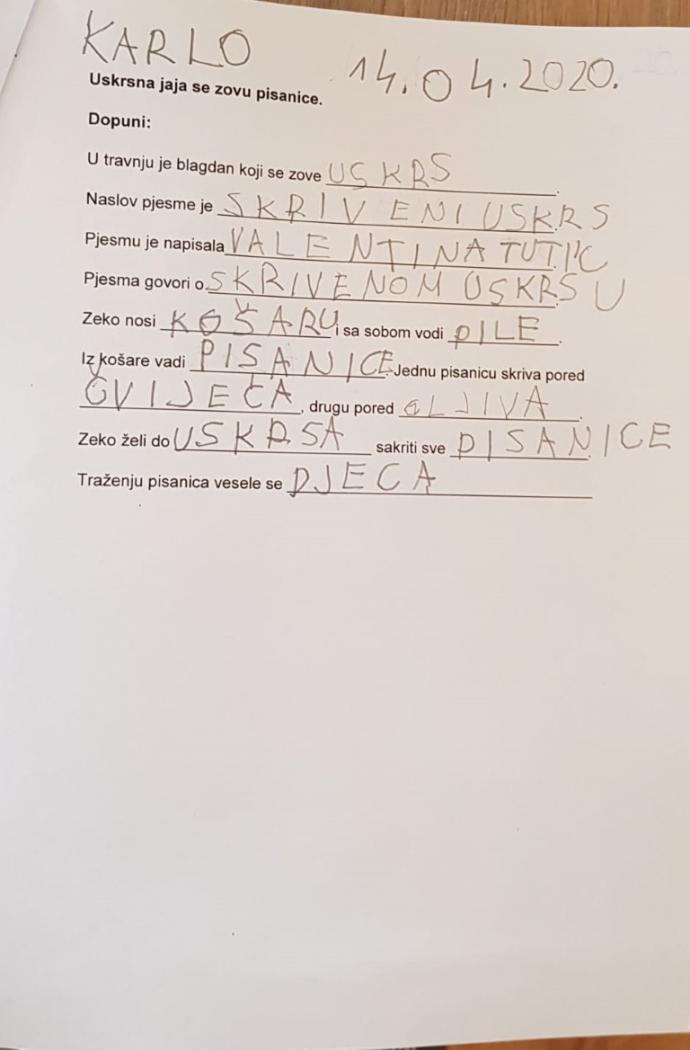 KARLO 14.04.2020.
Uskrsna jaja se zovu pisanice.
Dopuni:
U travnju je blagdan koji se zove USKRS.
Naslov pjesme je SKRIVENI USKRS
Pjesmu je napisala VALENTINA TUTIĆ
Pjesma govori o SKRIVENOM USKRSU
Zeko nosi KOŠARU i sa sobom vodi PILE.
Iz košare vadi PISANICE. Jednu pisanicu skriva pored
CVIJEĆA, drugu pored GLJIVA.
Zeko želi do USKRSA sakriti sve PISANICE
Traženju pisanica vesele se DJECA